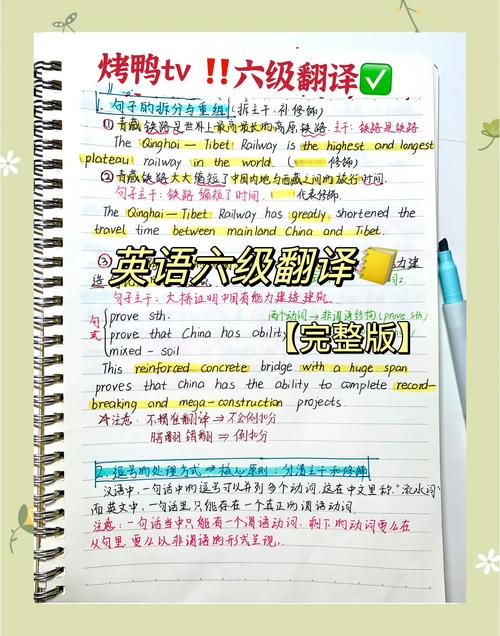 烤鸭tv ‼️六级翻译✅
1. 句子的拆分与重组 (拆主干、补修饰)
① 青藏铁路是世界上最高最长的高原铁路. 主干: 铁路是铁路.
The Qinghai — Tibet Railway is the highest and longest
plateau railway in the world. ( 修饰)
② 青藏铁路大大缩短了中国内地与西藏之间的旅行时间.
句子主干: 铁路缩短了时间. 代表修饰.
The Qinghai — Tibet Railway has greatly shortened the
travel time between mainland China and Tibet.
③
力建
英语六级翻译📒
造
句子主干: 大桥证明中国有能力建造建筑.
两个动词 → 非谓语结构 (prove sth)
句式
prove sth.
prove that China has ability
【完整版】
mixed - soil
This reinforced concrete bridge with a huge span
proves that china has the ability to complete record-
breaking and mega-construction projects.
注意: 不精准翻译 → 不会倒扣分
瞎翻 错翻 ⇒ 倒扣分
2. 逗号的处理方式 ⇒ 核心原则: 分清主干和修饰
汉语中, 一句话中的逗号可以并列多个动词, 这在中文里称 "流水句"
而英文中, 一句话里只能存在一个真正的谓语动词.
注意: 一句话当中只能有一个谓语动词. 剩下的动词要么在
从句里 要么以非谓语的形式呈现.